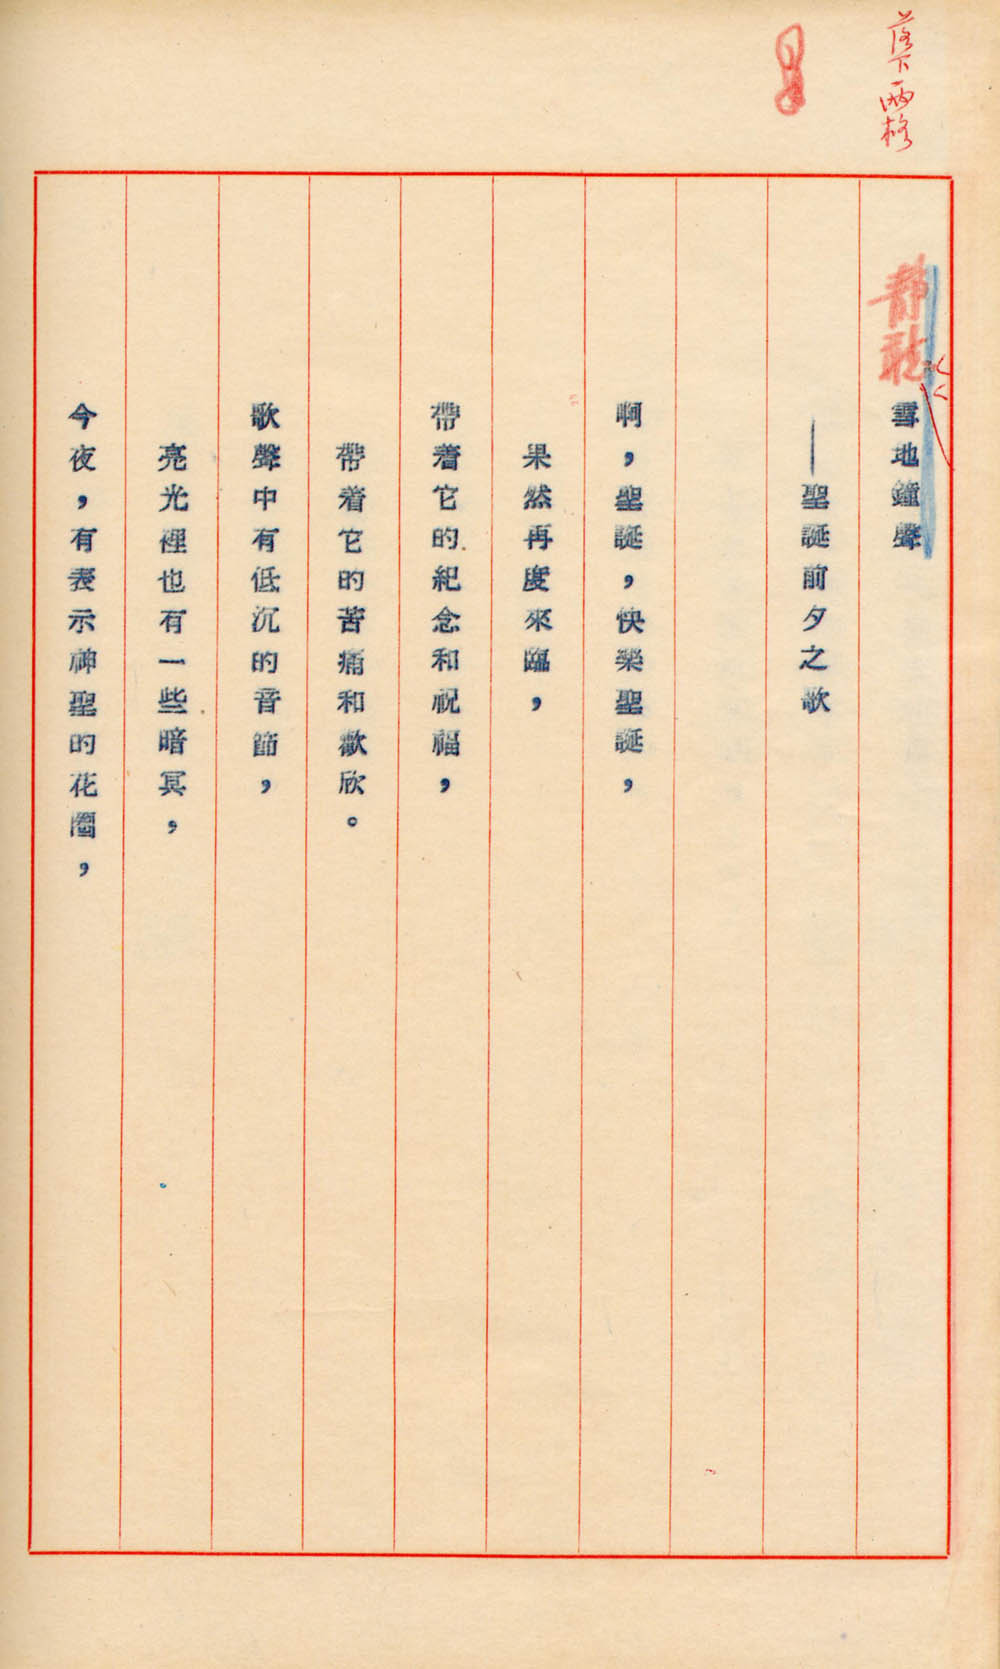 落下兩格
靜聽
雪地鐘聲
——聖誕前夕之歌
啊，聖誕，快樂聖誕，
果然再度來臨，
帶着它的紀念和祝福，
帶着它的苦痛和歡欣。
歌聲中有低沉的音節，
亮光裡也有一些暗冥，
今夜，有表示神聖的花圈，